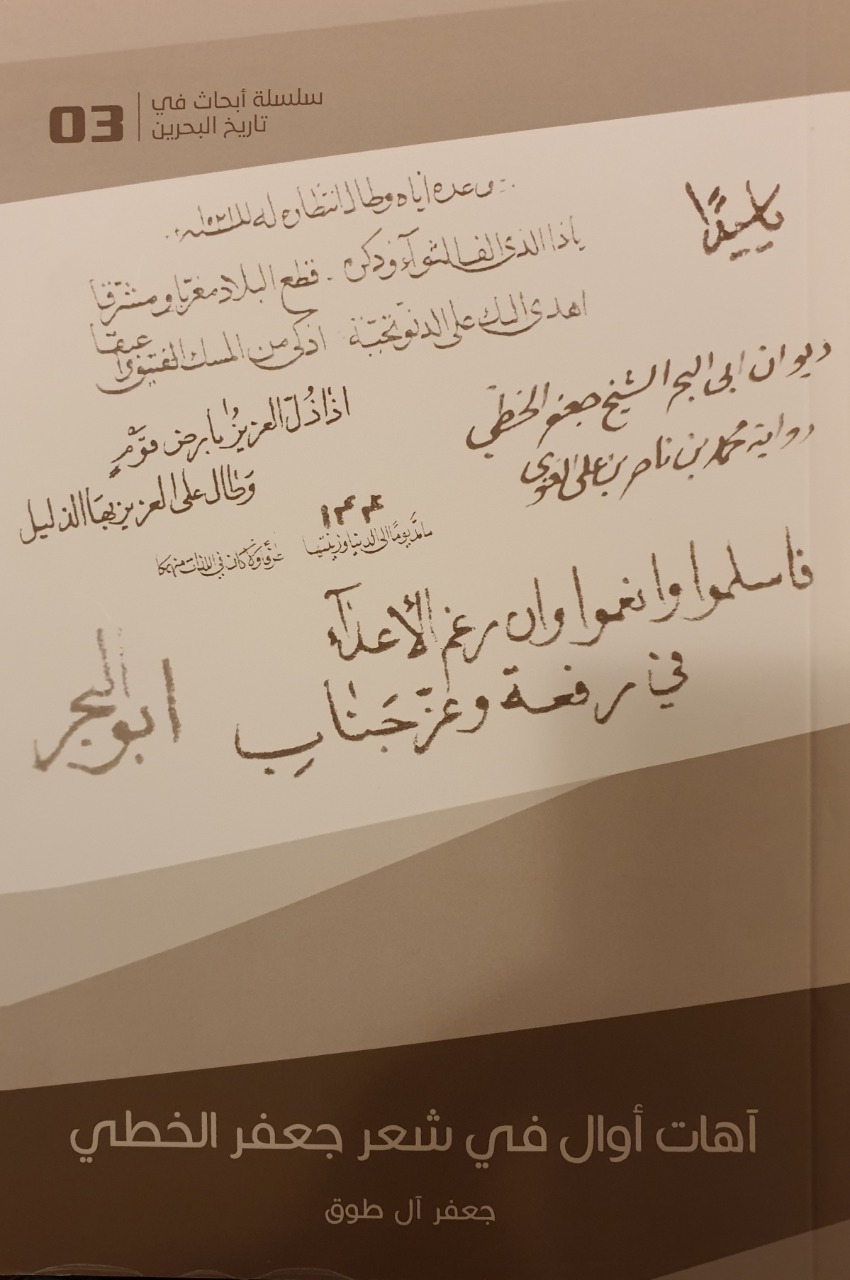 سلسلة أبحاث في
تاريخ البحرين
03
وعده اياه وطال انتظاره له
ياذا الذي الف الثوآء وذكره قطع البلاد مغربا ومشرقا
اهدى اليك على الدنو تحية اذكى من المسك الفتيق واعبقا
ديوان ابي البحر الشيخ جعفر الخطي
رواية محمد بن ناصر بن علي الغنوي
اذا ذل العزيز بارض قوم
وطال على العزيز بها الذليل
فاسلموا وانعموا وان رغم الأعدآء
في رفعة وعز جناب
ابو البحر
آهات أوال في شعر جعفر الخطي
جعفر آل طوق